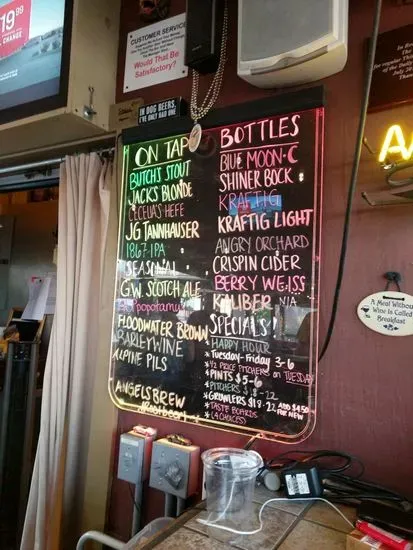 19.99
CUSTOMER SERVICE
Would That Be
Satisfactory?
IN DOG BEERS,
I'VE ONLY HAD ONE
ON TAP
BUTCH'S STOUT
JACKS BLONDE
CECELIA'S HEFE
JG TANNHAUSER
1867 IPA
SEASONAL
G.W. SCOTCH ALE
FLOODWATER BROWN
BARLEYWINE
ALPINE PILS
ANGELS BREW
(Rootbeer)
BOTTLES
BLUE MOON · C
SHINER BOCK
KRAFTIG
KRAFTIG LIGHT
ANGRY ORCHARD
CRISPIN CIDER
BERRY WEISS
KALIBER N/A
SPECIALS!
HAPPY HOUR
*Tuesday-Friday 3-6
*1/2 PRICE PITCHERS on TUESDAY
*PINTS $5-6
*PITCHERS $18-22
*GROWLERS $18-22 ADD $4.50
FOR NEW
*TASTE BOARDS
(4 CHOICES)
A Meal Without
Wine Is Called
Breakfast